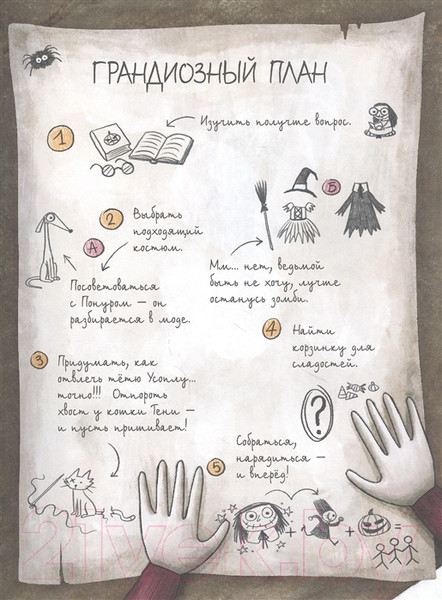 ГРАНДИОЗНЫЙ ПЛАН
1
Изучить получше вопрос.
2
Выбрать
подходящий
костюм.
А
Посоветоваться
с Понуром — он
разбирается в моде.
Б
Мм... нет, ведьмой
быть не хочу, лучше
останусь зомби.
3
Придумать, как
отвлечь тётю Усоплу...
точно!!! Отпороть
хвост у кошки Тени —
и пусть пришивает!
4
Найти
корзинку для
сладостей.
?
5
Собраться,
нарядиться —
и вперёд!
+ + =
21vek.by